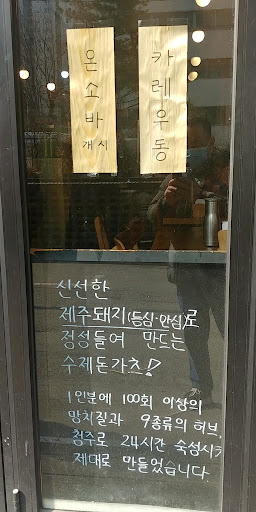 온소바
개시
카레우동
신선한
제주돼지(등심·안심)로
정성들여 만드는
수제돈가츠!
1인분에 100회 이상의
망치질과 9종류의 허브,
청주로 24시간 숙성시켜
제대로 만들었습니다